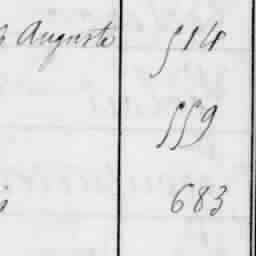 Auguste 514
559
683